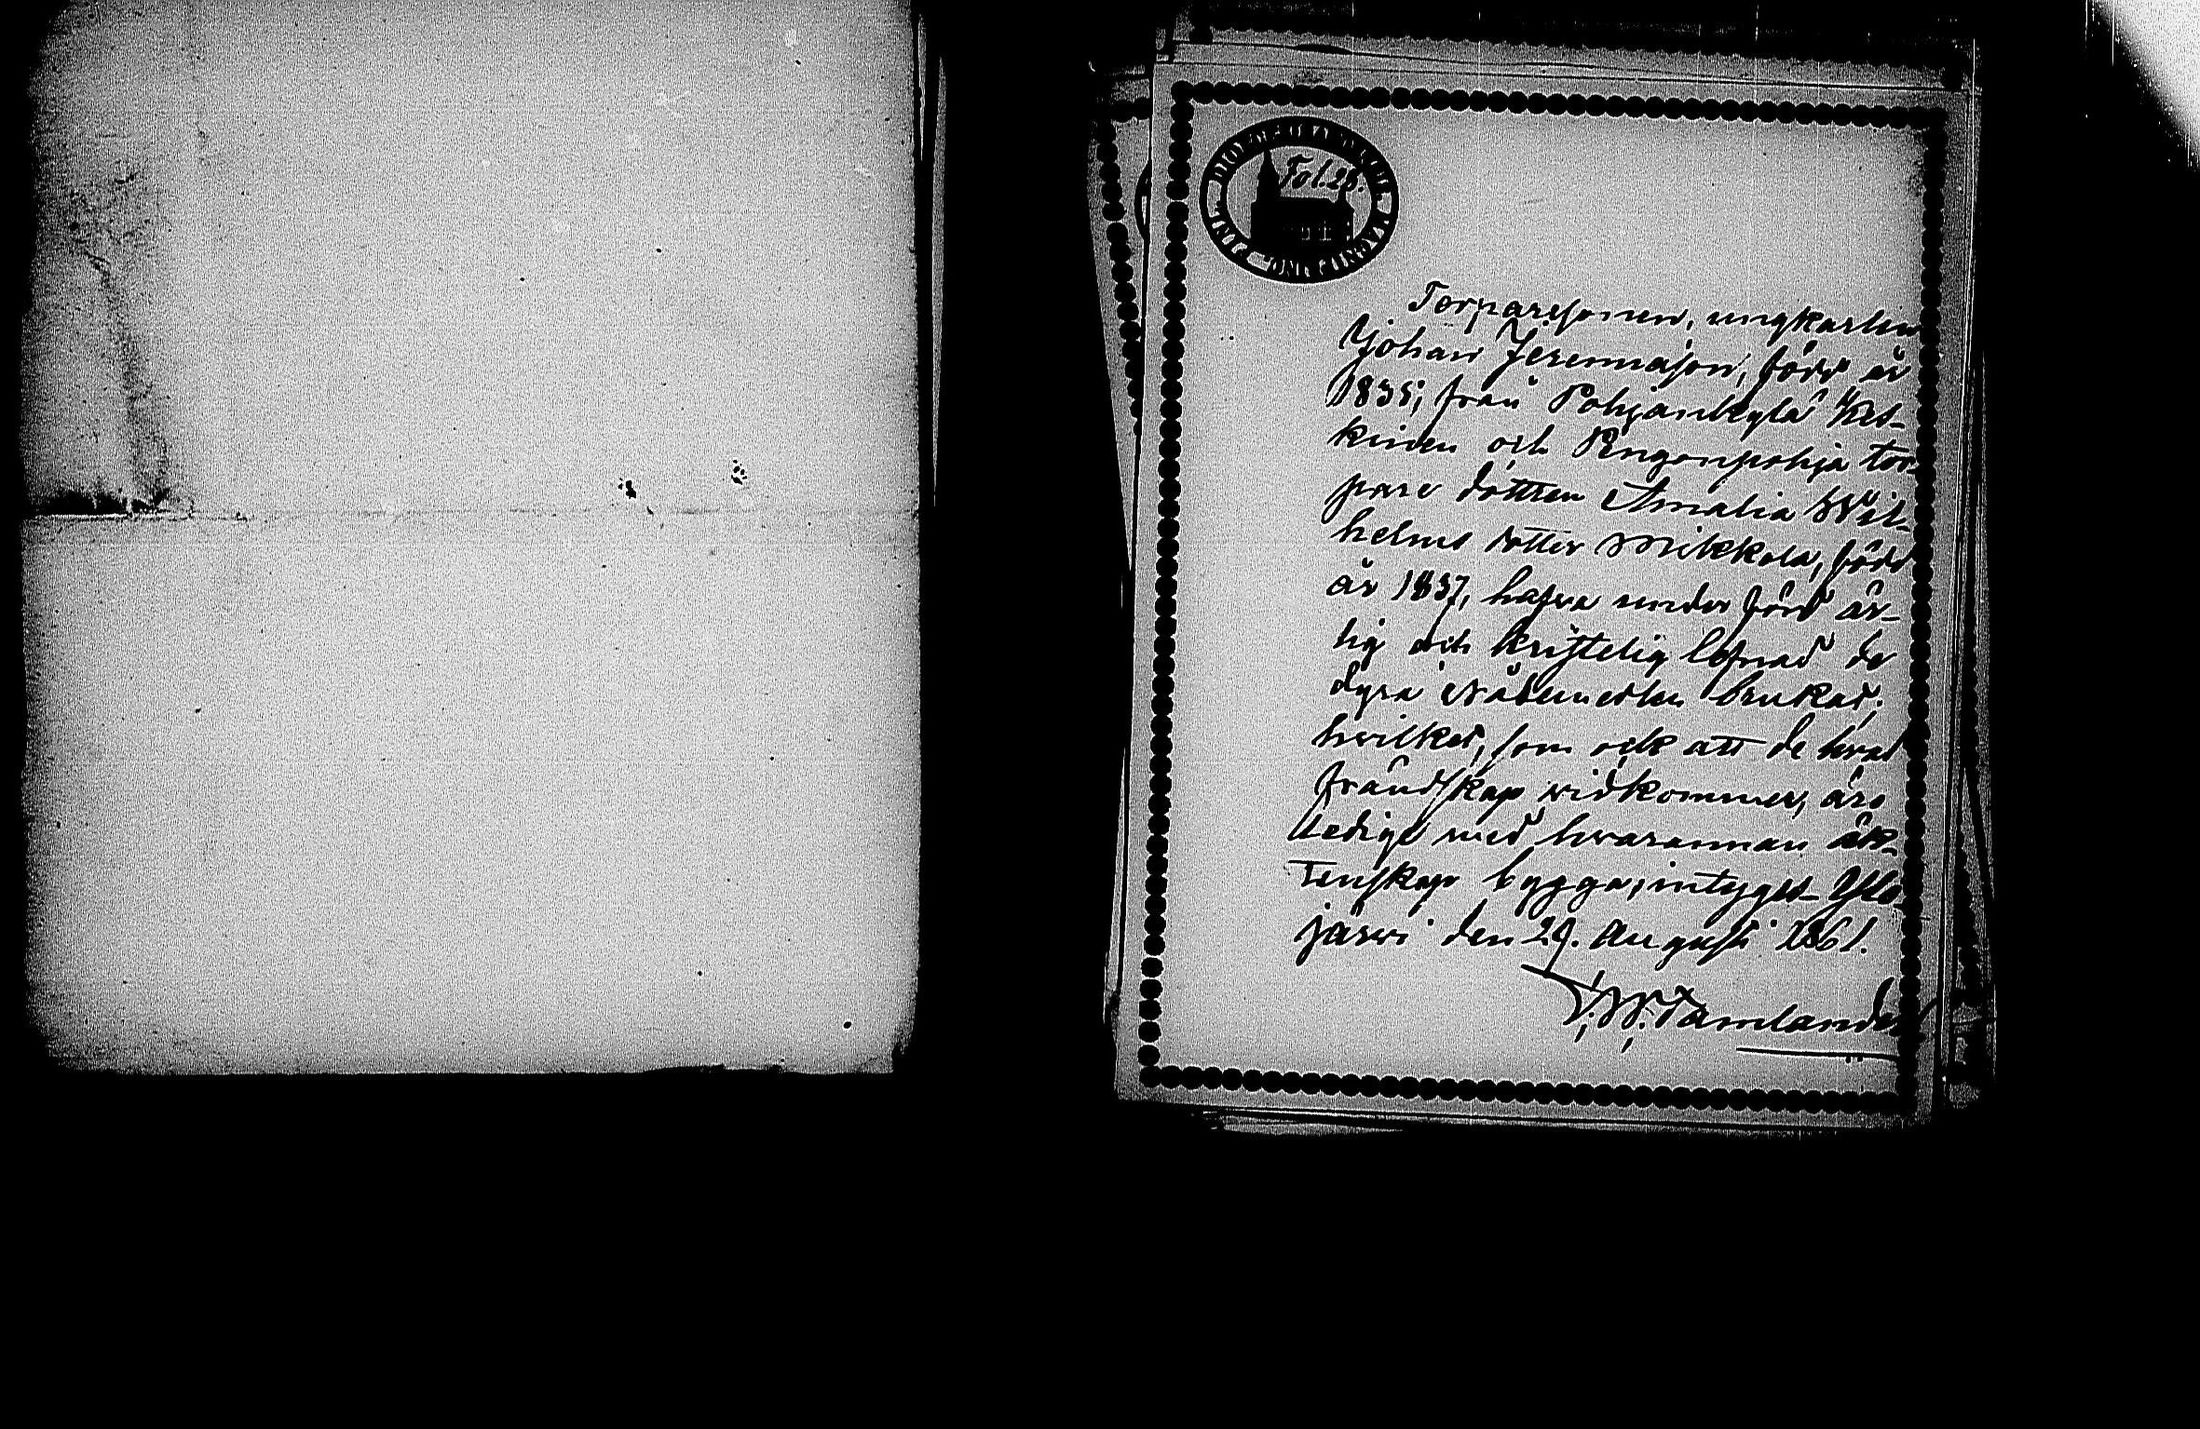 Fol. 28.
Torparesonen, ungkarlen
Johan Jeremiason, född år
1835, från Pohjankylä Kes-
kinen och Pengonpohja tor-
pare dottren Amalia Wil-
helms dotter Mikkola, född
år 1837, hafva under förd är-
lig och kristelig lefnad de
dyra Nådemedlen brukat;
hvilket, som ock att de hvad
frändskap vidkommer, äro
ledige med hvarannan äk-
tenskap bygga, intygas. Ylö-
järvi den 29. Augusti 1861.
F. W. Tamlander